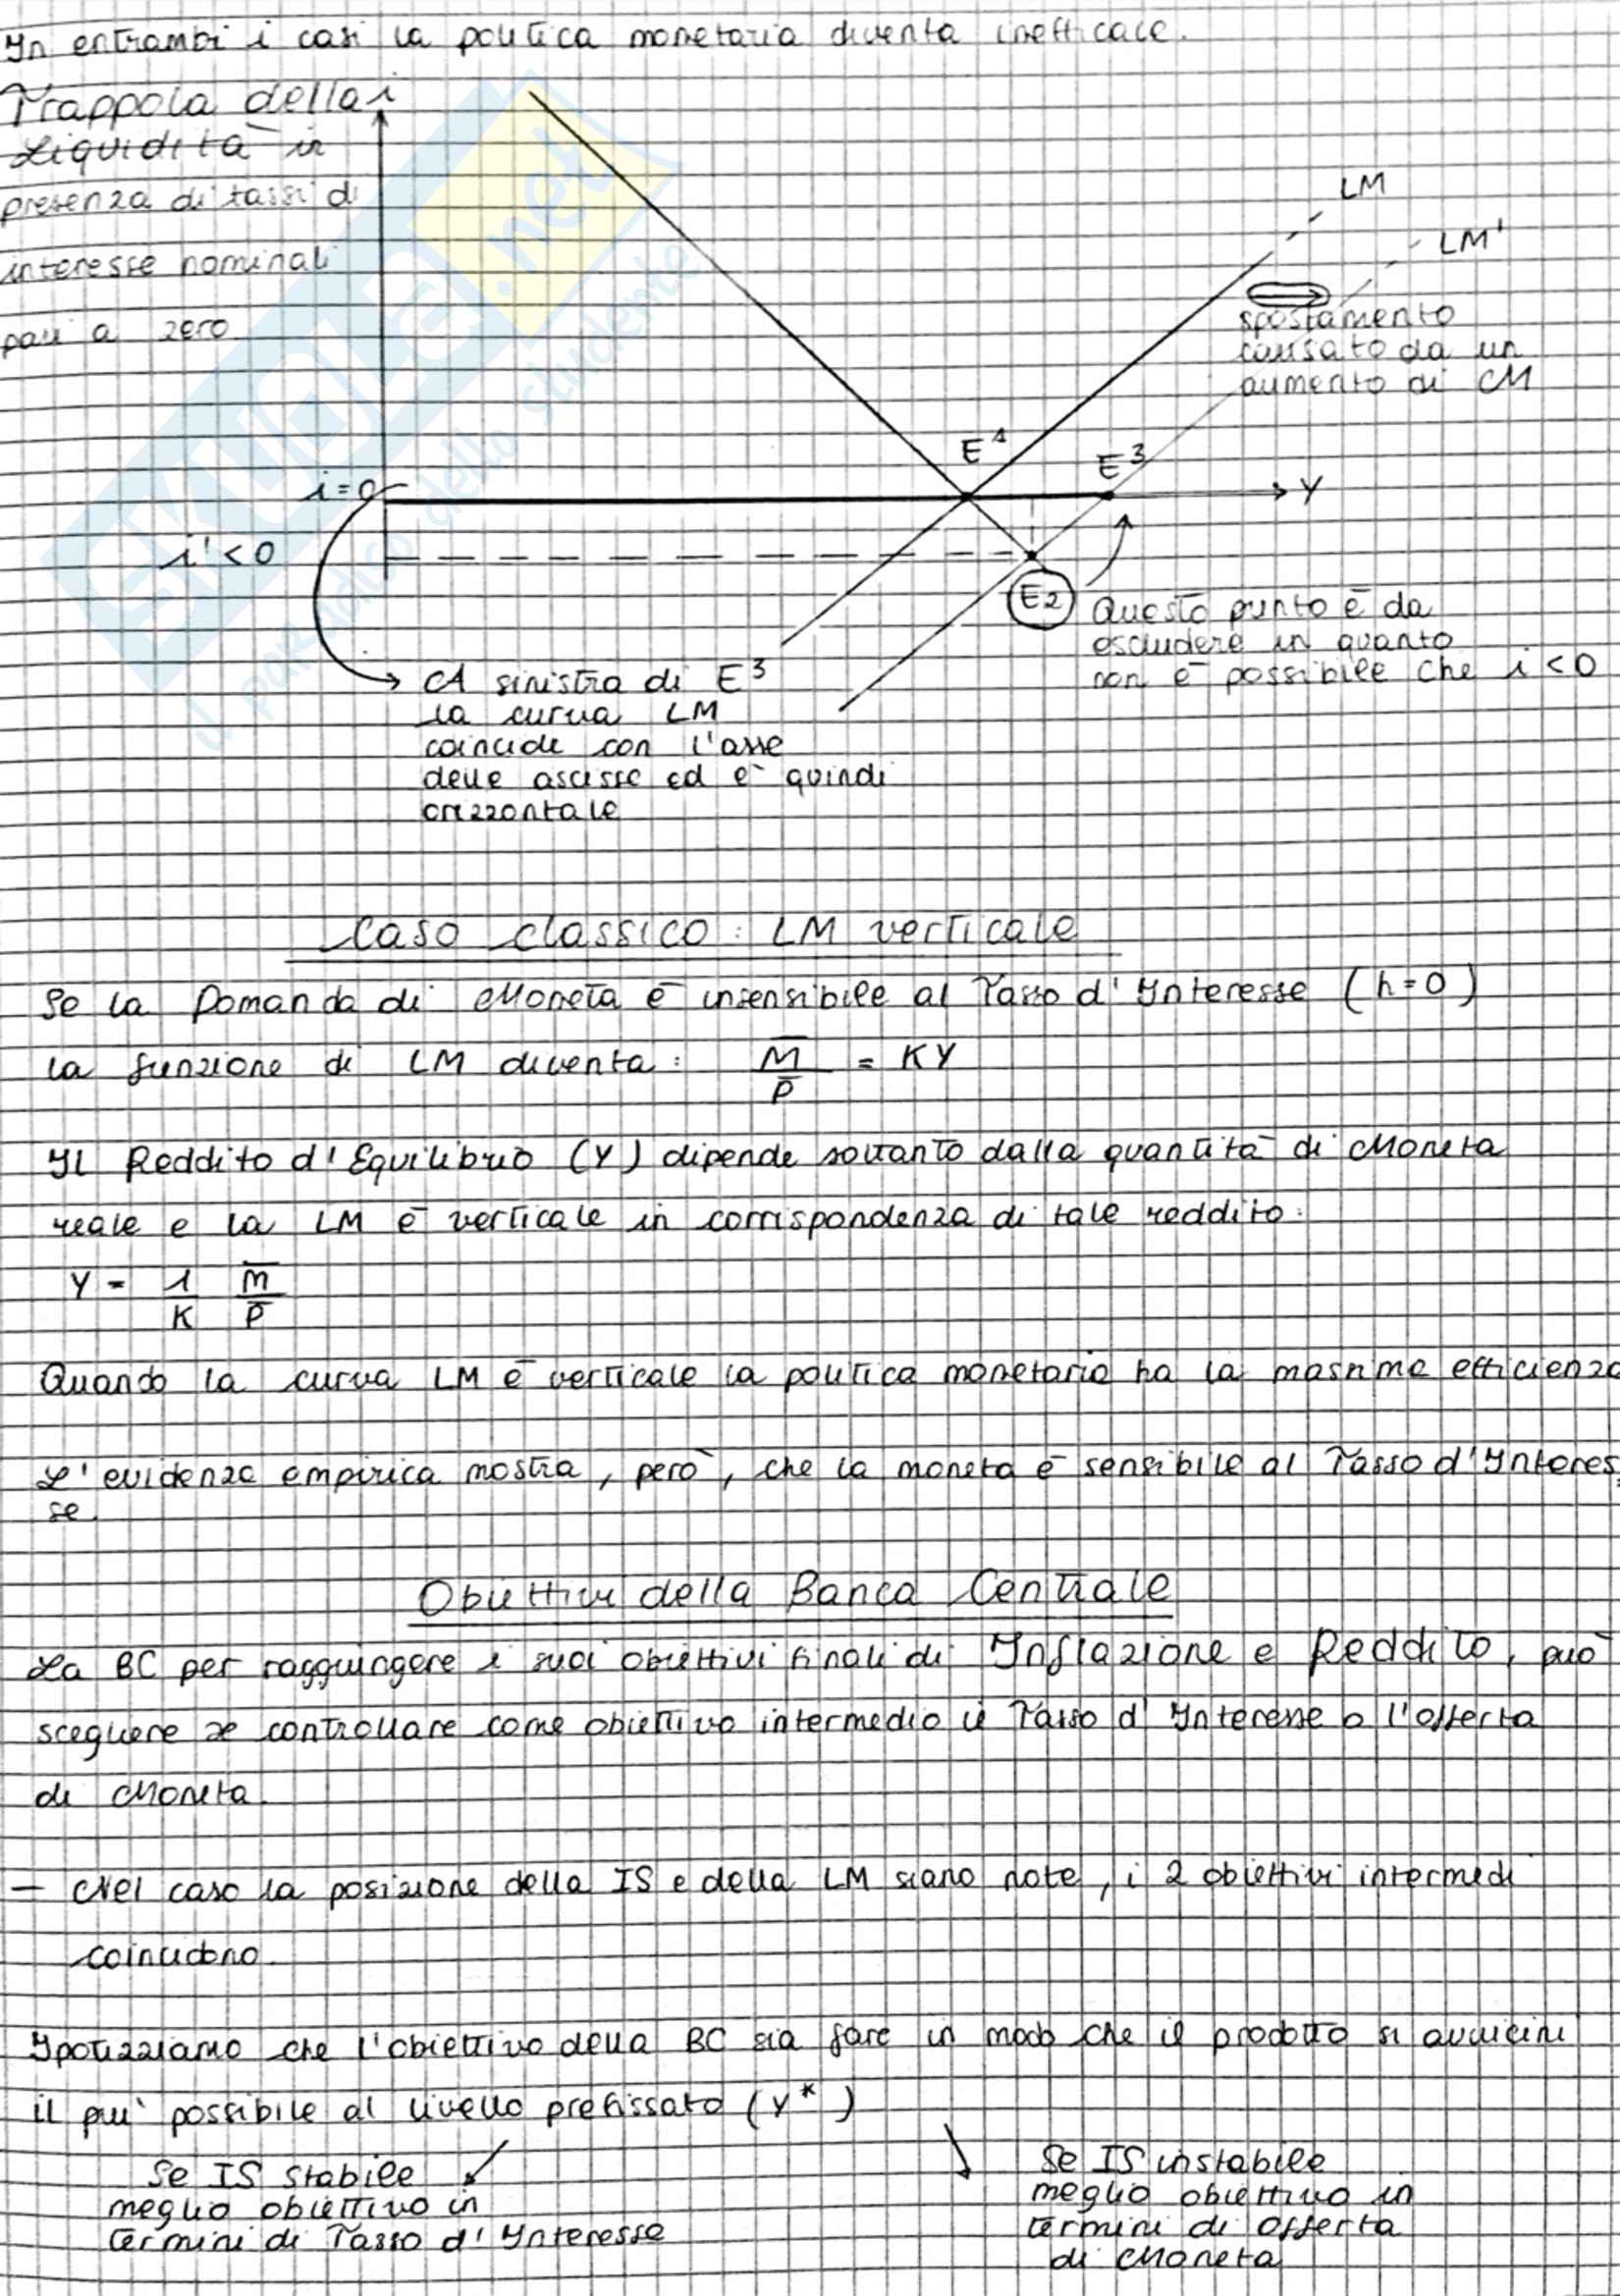 In entrambi i casi la politica monetaria diventa inefficace.
Trappola della
Liquidità in
presenza di tassi di
interesse nominali
pari a zero
i
LM
LM'
spostamento
causato da un
aumento di M
E¹
E³
i=0
Y
i'<0
E2
Questo punto è da
escludere in quanto
non è possibile che i<0
A sinistra di E³
la curva LM
coincide con l'asse
delle ascisse ed è quindi
orizzontale
Caso classico: LM verticale
Se la Domanda di Moneta è insensibile al Tasso d'Interesse (h=0)
la funzione di LM diventa: M̅/P̅ = KY
Il Reddito d'Equilibrio (Y) dipende soltanto dalla quantità di Moneta
reale e la LM è verticale in corrispondenza di tale reddito:
Y = 1/K M̅/P̅
Quando la curva LM è verticale la politica monetaria ha la massima efficienza
L'evidenza empirica mostra, però, che la moneta è sensibile al Tasso d'Interes
se.
Obiettivi della Banca Centrale
La BC per raggiungere i suoi obiettivi finali di Inflazione e Reddito, può
scegliere se controllare come obiettivo intermedio il Tasso d'Interesse o l'offerta
di Moneta.
– Nel caso la posizione della IS e della LM siano note, i 2 obiettivi intermedi
coincidono.
Ipotizziamo che l'obiettivo della BC sia fare in modo che il prodotto si avvicini
il più possibile al livello prefissato (Y*)
Se IS stabile
meglio obiettivo in
termini di Tasso d'Interesse
Se IS instabile
meglio obiettivo in
termini di Offerta
di Moneta
SKUOLA.net
il paradiso dello studente